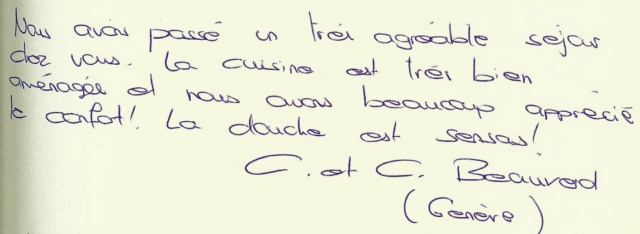 Nous avons passé un très agréable séjour
chez vous. La cuisine est très bien
aménagée et nous avons beaucoup apprécié
le confort! La douche est sensas!
C. et C. Beauverd
(Genève)